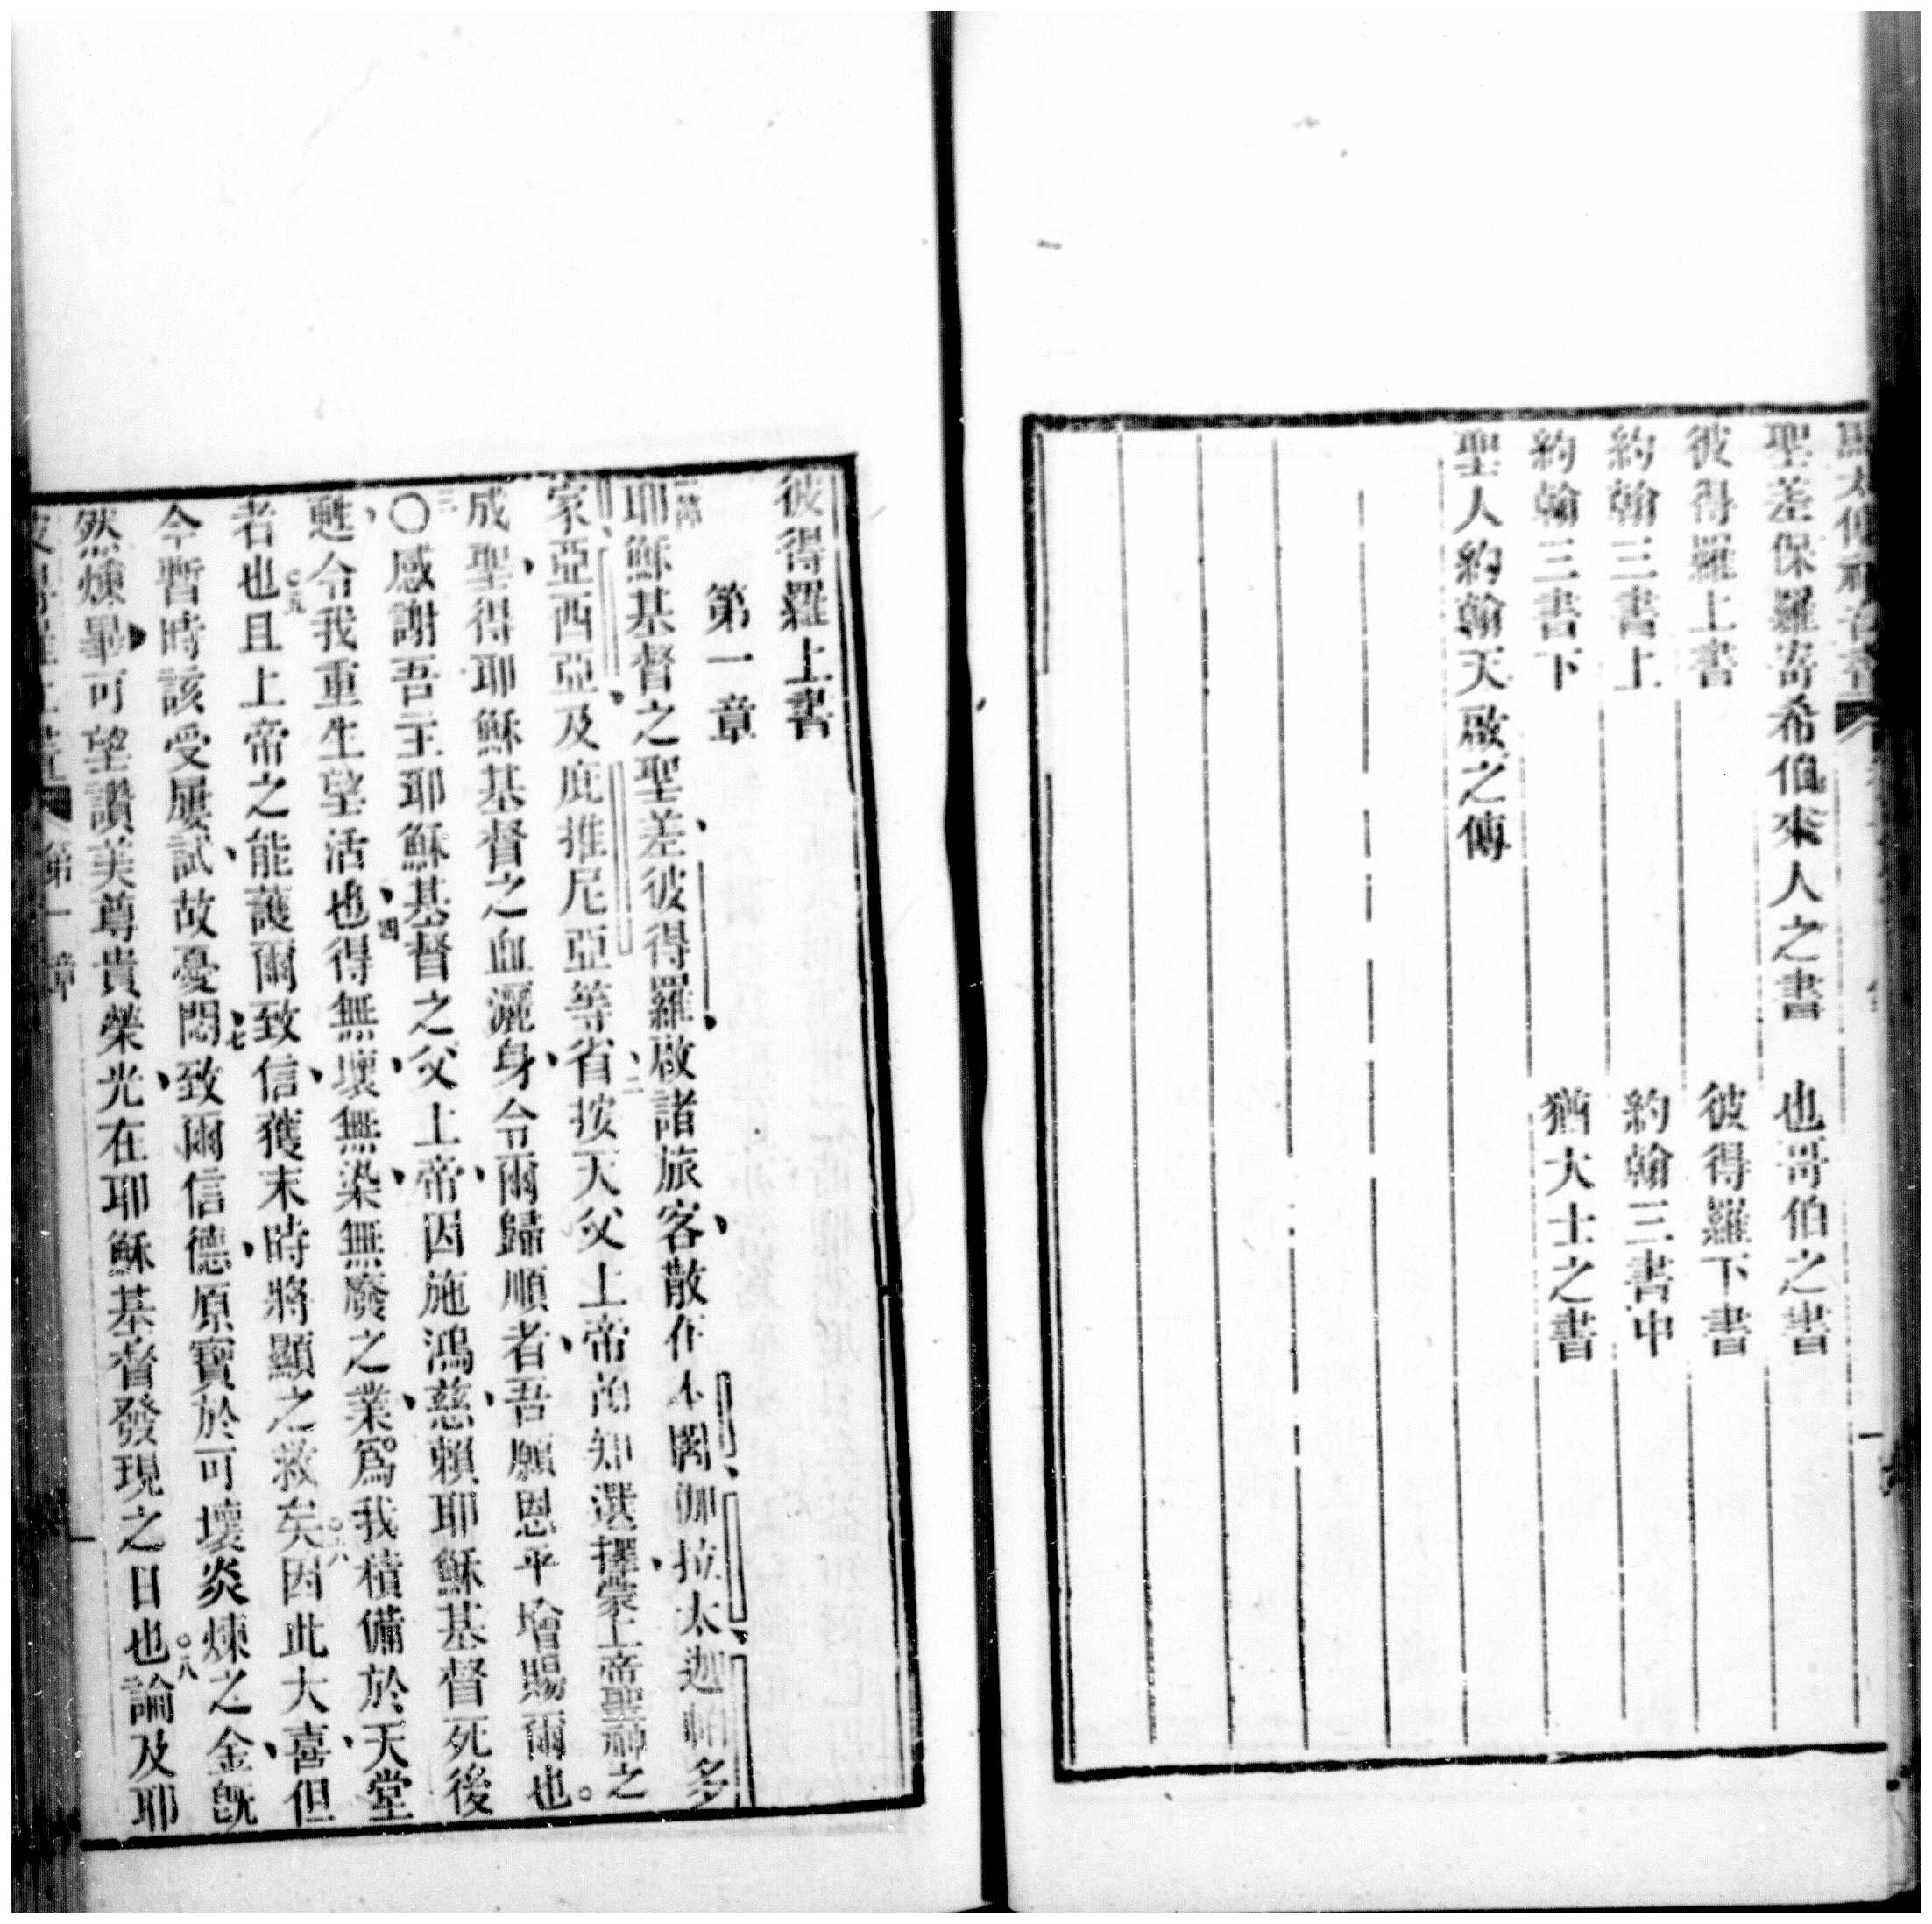 聖差保羅寄希伯來人之書　也哥伯之書
彼得羅上書　彼得羅下書
約翰三書上　約翰三書中
約翰三書下　猶大士之書
聖人約翰天啟之傳
彼得羅上書
第一章
耶穌基督之聖差彼得羅啟諸旅客散在本閣伽拉太迦帕多
家亞西亞及庇推尼亞等省二按天父上帝預知選擇蒙上帝聖神之
成聖得耶穌基督之血灑身令爾歸順者吾願恩平增賜爾也。
三〇感謝吾主耶穌基督之父上帝因施鴻慈賴耶穌基督死後
甦令我重生望活也四得無壞無染無廢之業爲我積備於天堂
者也五且上帝之能護爾致信獲末時將顯之救矣六因此大喜但
今暫時該受屢試故憂悶七致爾信德原寶於可壞炎煉之金旣
然煉畢可望讚美尊貴榮光在耶穌基督發現之日也八論及耶
第一章
一